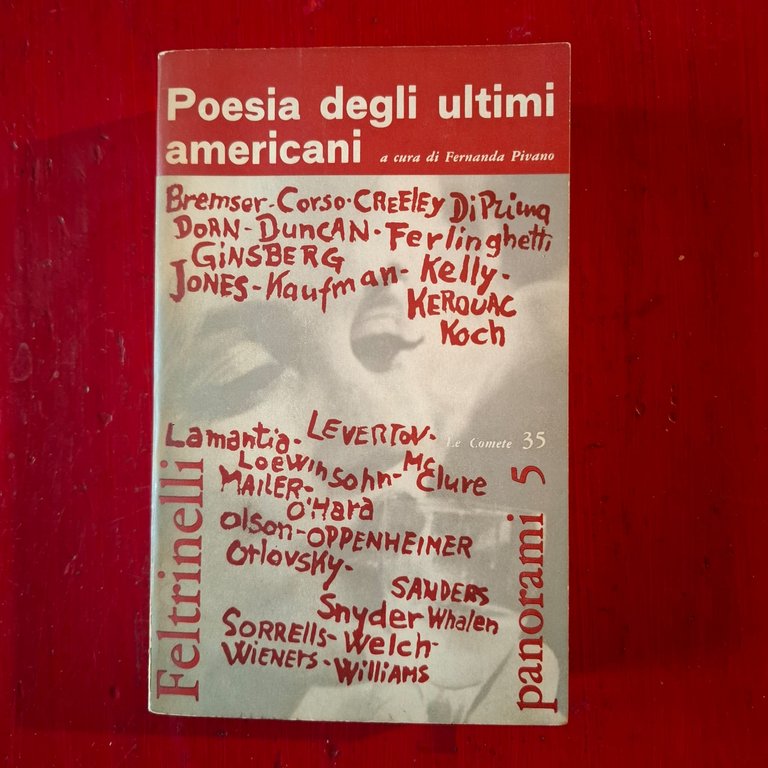 Poesia degli ultimi
americani a cura di Fernanda Pivano
Bremser-Corso-CREELEY DiPrima
DORN-DUNCAN-Ferlinghetti
GINSBERG
JONES-Kaufman-Kelly-
KEROUAC
Koch
Lamantia-LEVERTOV-
Le Comete 35
Loewinsohn-McClure
MAILER-
O'Hara
Olson-OPPENHEIMER
Orlovsky-
SANDERS
Snyder Whalen
SORRELLS-Welch-
WIENERS-WILLIAMS
Feltrinelli
panorami 5